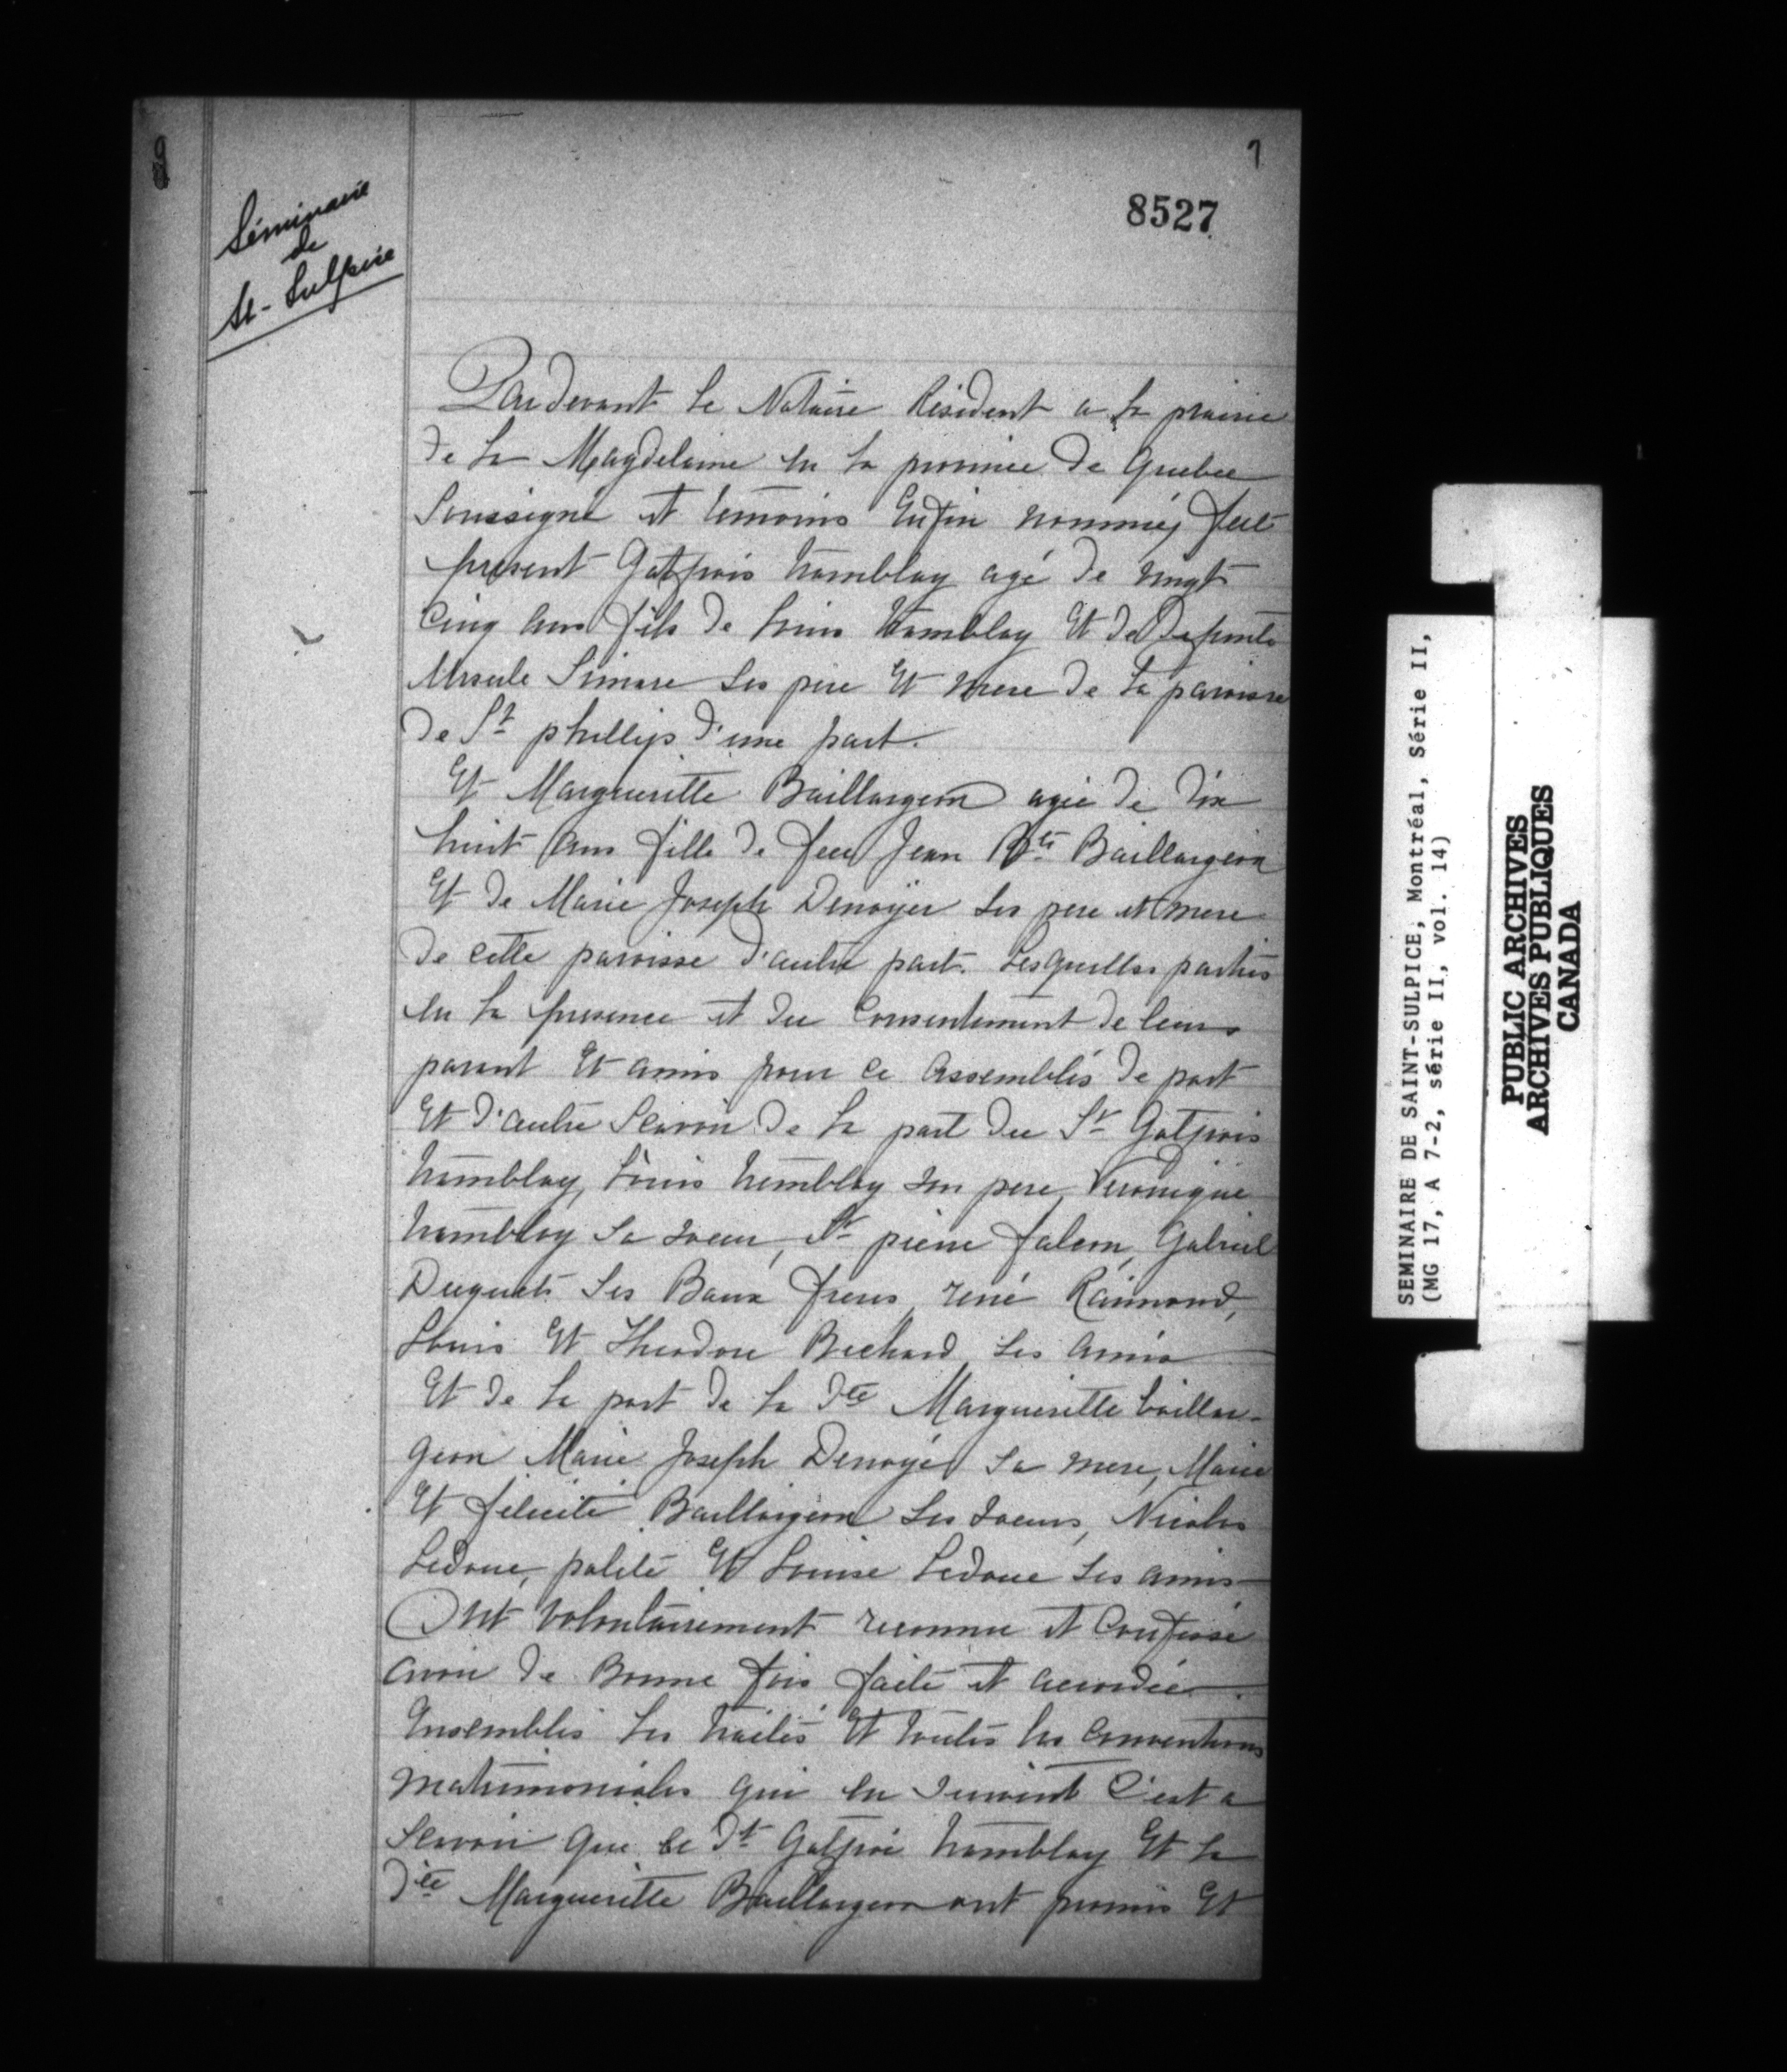 1
8527
Séminaire
de
St-Sulpice
Pardevant le Notaire Résident a la prairie
de la Magdelaine en la province de Quebec
Soussigné et temoins Enfin nommés fut
present Gatfrois tramblay agé de vingt
Cinq ans fils de Louis tramblay Et de Defunte
Ursule Simare ses pere Et mere de la paroisse
de St phillips d'une part.
Et Margueritte Baillargeon agée de dix
huit ans fille de feu Jean Bte Baillargeon
Et de Marie Joseph Denoyer ses pere et mere
de cette paroisse d'autre part. Lesquelles parties
en la presence et du Consentement de leurs
parent Et amis pour ce assemblés de part
Et d'autre Scavoir de la part du St Gatfrois
tramblay, Louis tremblay son pere, Veronique
tramblay sa soeur, et pierre falern, Gabriel
Duquet ses Baux freres, rené Raimond,
Louis Et Theodore Bechard ses amis
Et de la part de la dte Margueritte baillar-
geon Marie Joseph Denoyé sa mere, Marie
Et félicité Baillargeon ses soeurs, Nicolas
Ledoue, polite Et Louise Ledoue ses amis
Ont volontairement reconnu et Confessé
avoir de Bonne fois faite et accordée
Ensembles les traités Et toutes les Conventions
matrimoniales qui en suivent C'est a
Scavoir que le dt Gatfroi tramblay Et la
dite Margueritte Baillargeon ont promis Et
SEMINAIRE DE SAINT-SULPICE, Montréal, Série II,
(MG 17, A 7-2, série II, vol. 14)
PUBLIC ARCHIVES
ARCHIVES PUBLIQUES
CANADA